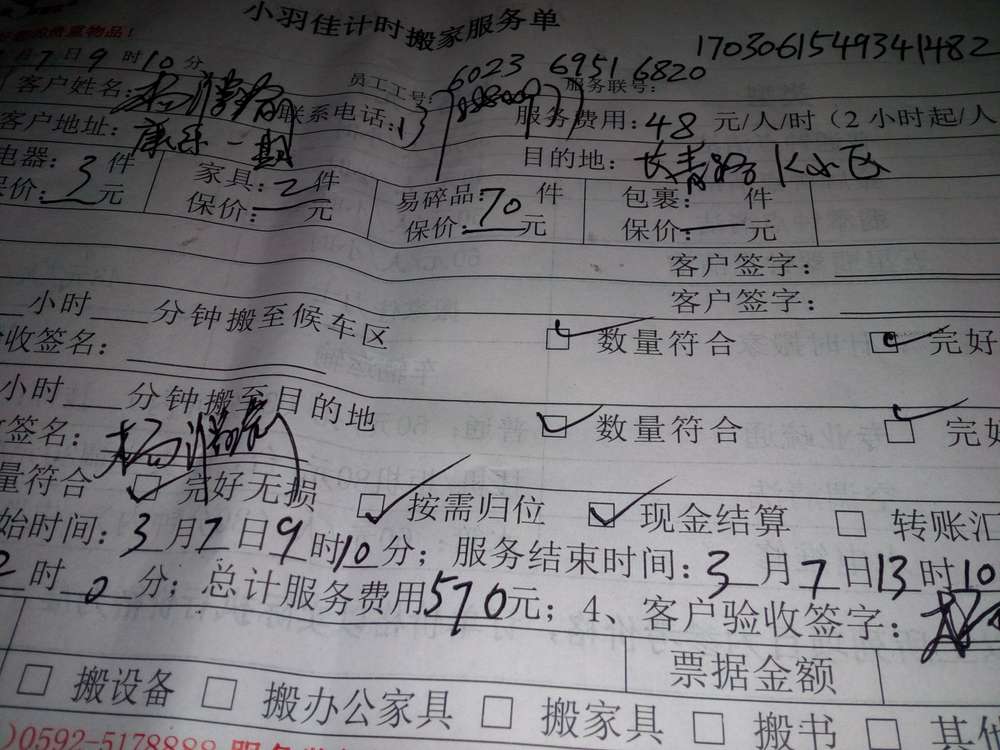 小羽佳计时搬家服务单
贵重物品!
月7日9时10分 1703061549341482
客户姓名: 员工工号: 6023 6951 6820 服务联号:
联系电话: 服务费用:48元/人/时(2小时起/人
客户地址:康乐一期 目的地:长青路K小区
电器:3件 家具:2件 易碎品: 件 包裹: 件
保价:一元 保价:一元 保价:70元 保价:一元
客户签字:
小时 分钟搬至候车区 客户签字:
收签名: 数量符合 完好
小时 分钟搬至目的地 数量符合 完好
签名:
量符合 完好无损 按需归位 现金结算 转账汇
始时间:3月7日9时10分;服务结束时间:3月7日13时10
2时0分;总计服务费用570元;4、客户验收签字:
票据金额
搬设备 搬办公家具 搬家具 搬书 其他
)0592-5178888